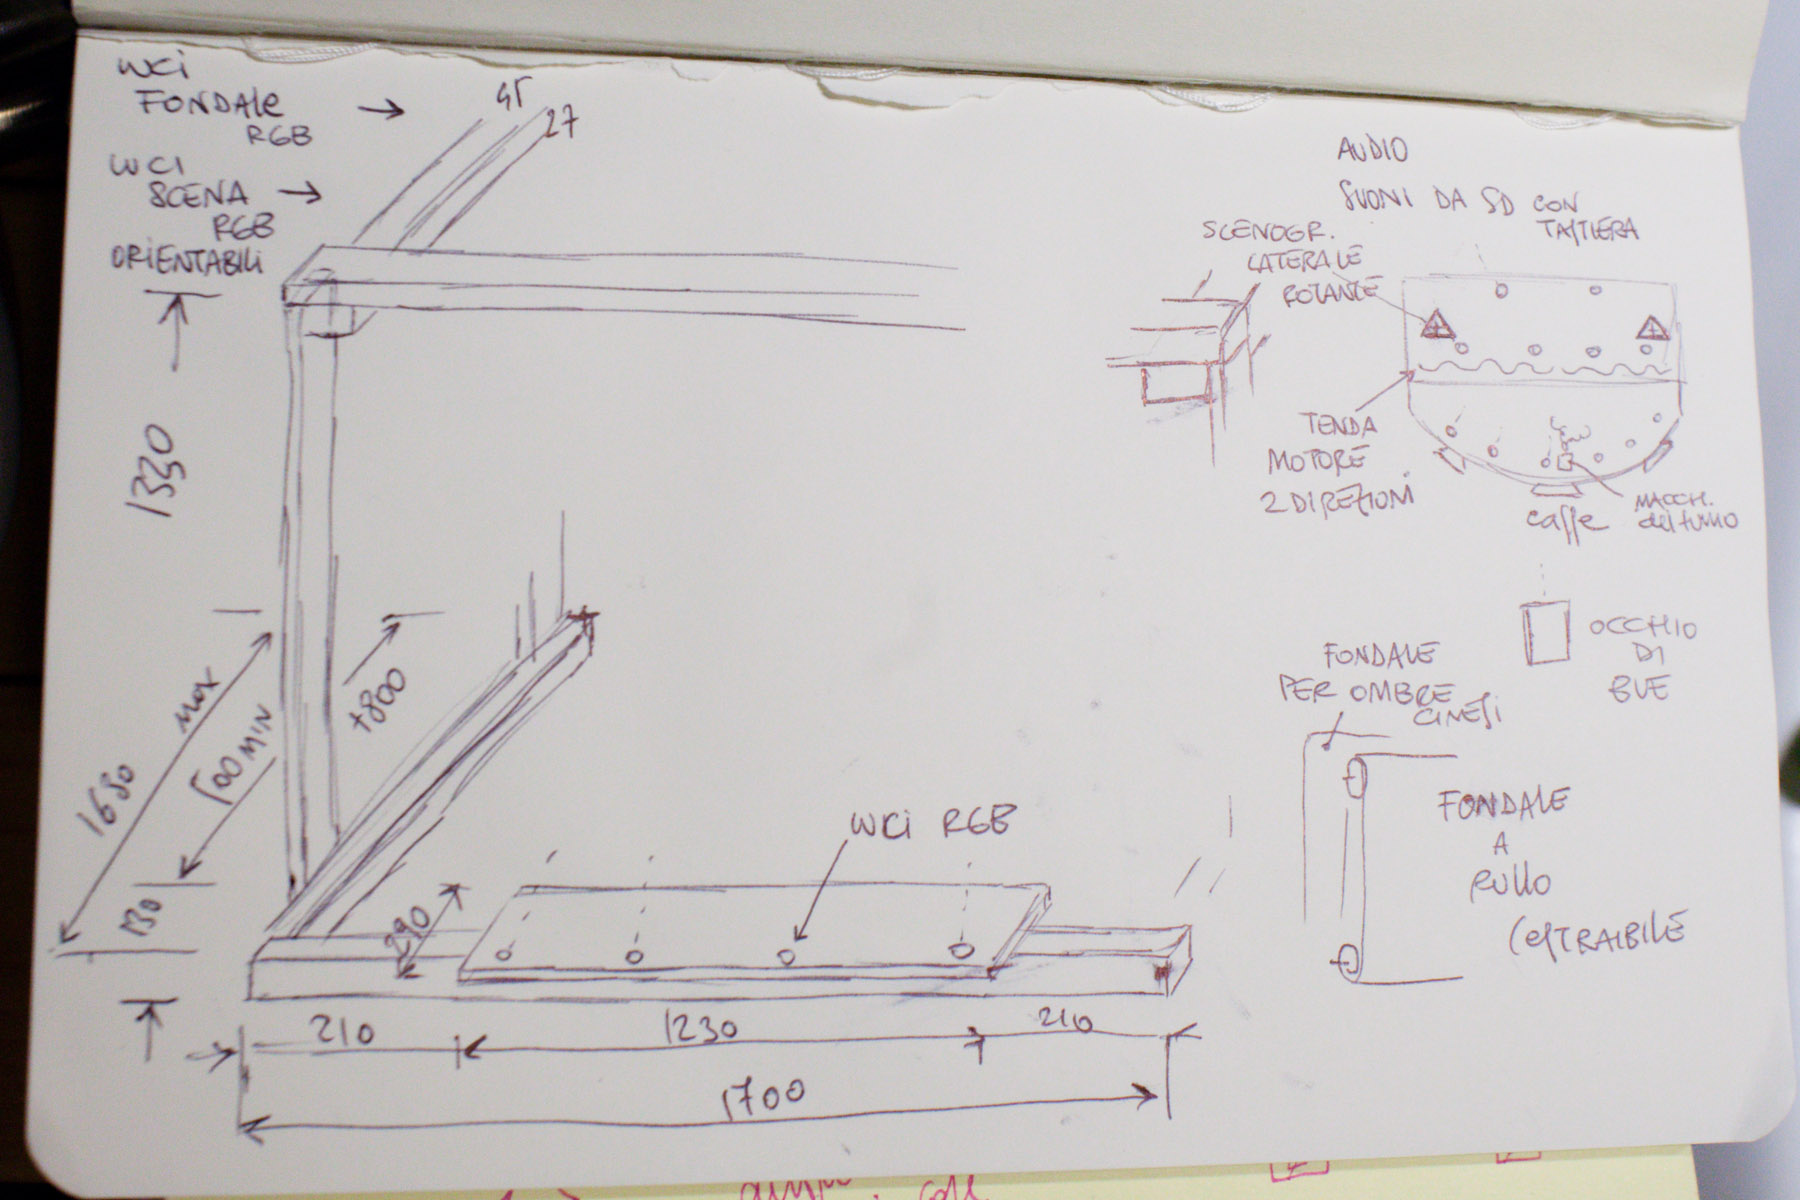 WCi
FONDALE
RGB
45
27
WCI
SCENA
RGB
ORIENTABILI
1330
1680
MAX
500 MIN
+800
130
290
WCi RGB
210
1230
210
1700
AUDIO
SUONI DA SD CON
TASTIERA
SCENOGR.
LATERALE
ROTANTE
TENDA
MOTORE
2 DIREZIONI
caffe
MACCH.
del fumo
OCCHIO
DI
BUE
FONDALE
PER OMBRE
CINESI
FONDALE
A
RULLO
(ESTRAIBILE